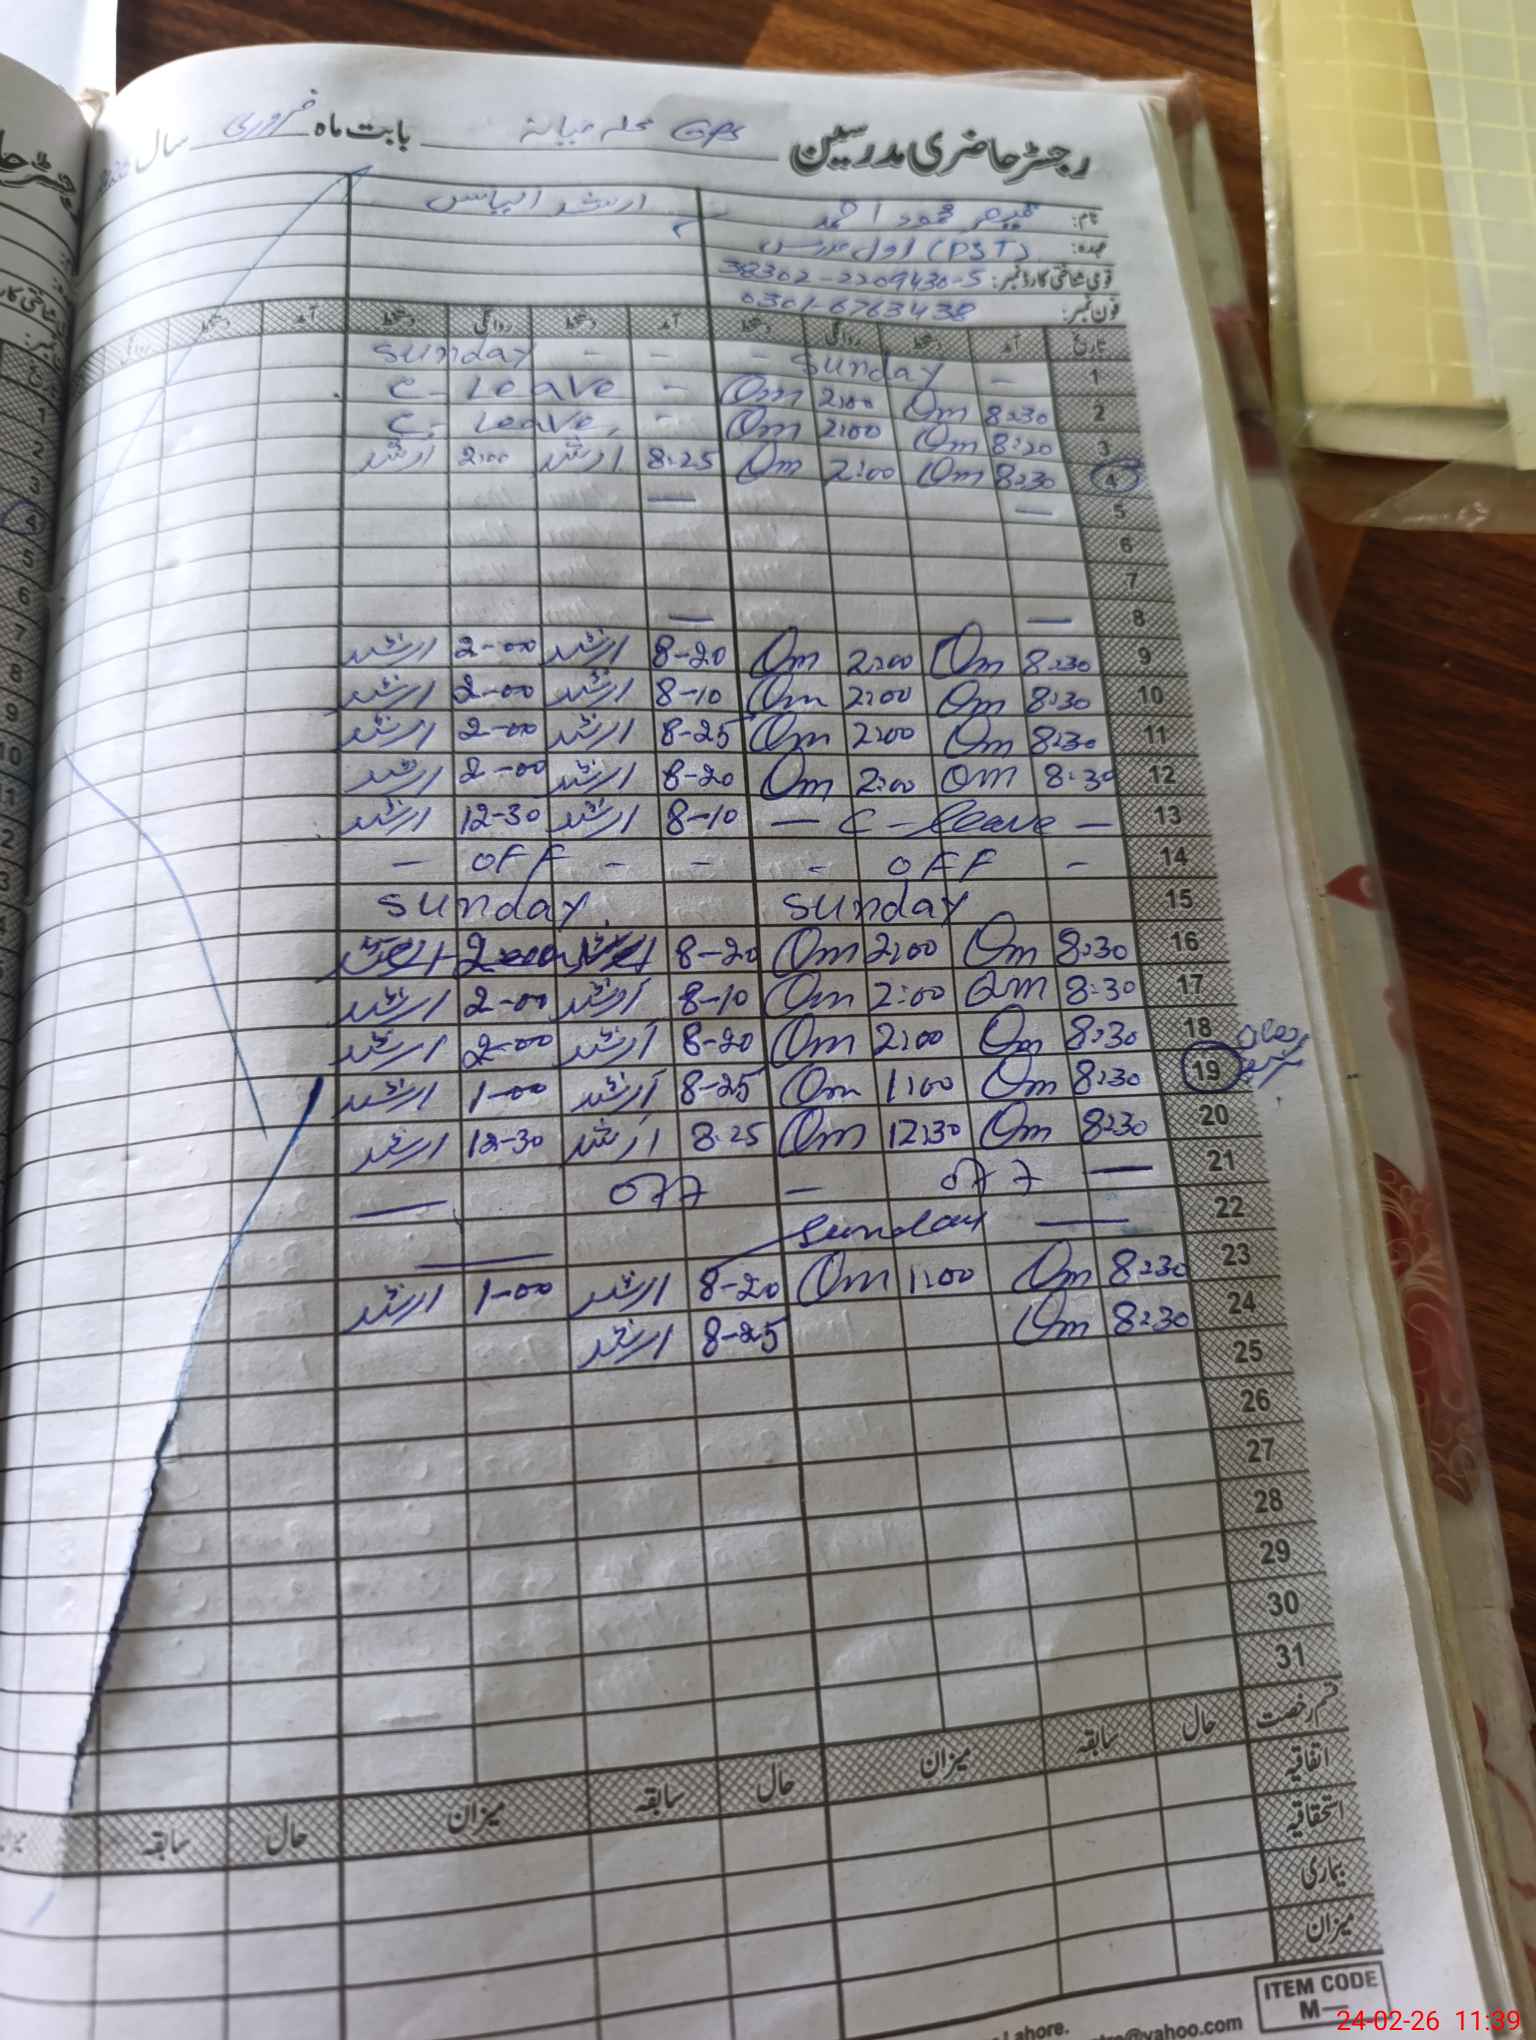 رجسٹر حاضری مدرسین GPS محلہ بابت ماہ فروری سال
نام: محمود احمد ارشد الیاس
عہدہ: اول مدرس (PST)
قومی شناختی کارڈ نمبر: 38302-2209430-5
فون نمبر: 0301-6763438
تاریخ آمد دستخط روانگی دستخط آمد دستخط روانگی دستخط آمد دستخط روانگی
1 - Sunday - - - Sunday
2 8:30 Om 2:00 Om - C-Leave
3 8:20 Om 2:00 Om - C-Leave
4 8:30 Om 2:00 Om 8:25 ارشد 2:00 ارشد
5 — —
6
7
8 — —
9 8:30 Om 2:00 Om 8-20 ارشد 2-00 ارشد
10 8:30 Om 2:00 Om 8-10 ارشد 2-00 ارشد
11 8:30 Om 2:00 Om 8-25 ارشد 2-00 ارشد
12 8:30 Om 2:00 Om 8-20 ارشد 2-00 ارشد
13 — C-leave — 8-10 ارشد 12-30 ارشد
14 - OFF - - - OFF -
15 Sunday Sunday
16 8:30 Om 2:00 Om 8-20 ارشد 2-00 ارشد
17 8:30 Om 2:00 Om 8-10 ارشد 2-00 ارشد
18 8:30 Om 2:00 Om 8-20 ارشد 2-00 ارشد
19 8:30 Om 1:00 Om 8-25 ارشد 1-00 ارشد
20 8:30 Om 12:30 Om 8.25 ارشد 12-30 ارشد
21 — OFF — OFF —
22 — Sunday —
23 8:30 Om 1:00 Om 8-20 ارشد 1-00 ارشد
24 8:30 Om 8-25 ارشد
25
26
27
28
29
30
31
قسم رخصت حال سابقہ میزان حال سابقہ میزان حال سابقہ
اتفاقیہ
استحقاقیہ
بیماری
میزان
ITEM CODE
M—
Lahore.
@yahoo.com
24-02-26 11:39